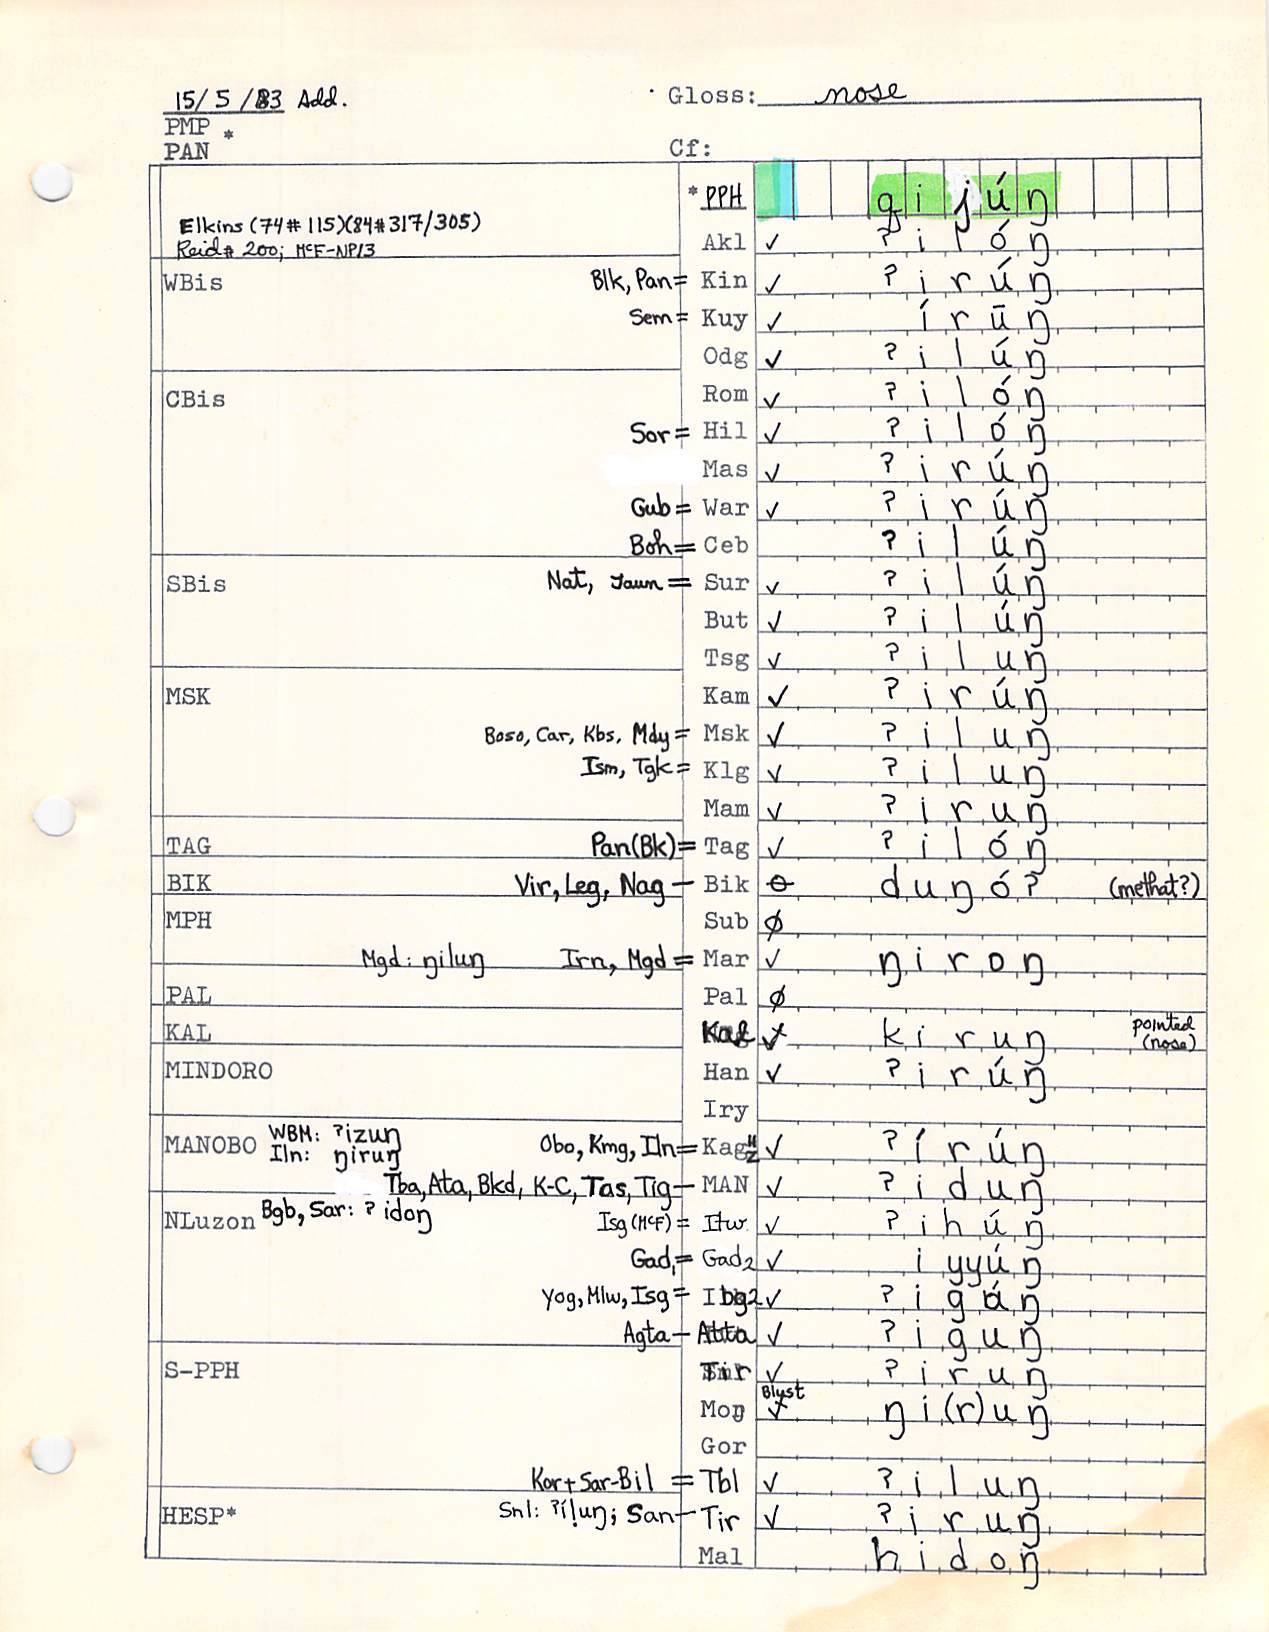 15/5/83 Add. Gloss: nose
PMP *
PAN Cf:
*PPH qijúŋ
Elkins (74#115)(84#317/305)
Reid# 200; McF-NP13 Akl ✓ ʔilóŋ
WBis Blk, Pan= Kin ✓ ʔirúŋ
Sem= Kuy ✓ írūŋ
Odg ✓ ʔilúŋ
CBis Rom ✓ ʔilóŋ
Sor= Hil ✓ ʔilóŋ
Mas ✓ ʔirúŋ
Gub= War ✓ ʔirúŋ
Boh= Ceb ʔilúŋ
SBis Nat, Jaun= Sur ✓ ʔilúŋ
But ✓ ʔilúŋ
Tsg ✓ ʔiluŋ
MSK Kam ✓ ʔirúŋ
Boso, Car, Kbs, Mdy= Msk ✓ ʔiluŋ
Ism, Tgk= Klg ✓ ʔiluŋ
Mam ✓ ʔiruŋ
TAG Pan(Bk)= Tag ✓ ʔilóŋ
BIK Vir, Leg, Nag— Bik ⊖ duŋóʔ (methat?)
MPH Sub ∅
Mgd: ŋiluŋ Irn, Mgd= Mar ✓ ŋiroŋ
PAL Pal ∅
KAL ✓ kiruŋ pointed (nose)
MINDORO Han ✓ ʔirúŋ
Iry
MANOBO WBM: ʔizuŋ
Iln: ŋiruŋ Obo, Kmg, Iln= Kag ✓ ʔírúŋ
Tba, Ata, Bkd, K-C, Tas, Tig— MAN ✓ ʔiduŋ
NLuzon Bgb, Sar: ʔidoŋ Isg (McF)= Itw. ✓ ʔihúŋ
Gad1= Gad2 ✓ iyyúŋ
Yog, Mlw, Isg= Ibg2 ✓ ʔigáŋ
Agta— Atta ✓ ʔiguŋ
S-PPH Tir ✓ ʔiruŋ
Blust
Moŋ ✓ ŋi(r)uŋ
Gor
Kor+Sar-Bil = Tbl ✓ ʔiluŋ
HESP* Snl: ʔíḷuŋ; San— Tir ✓ ʔiruŋ
Mal hidoŋ